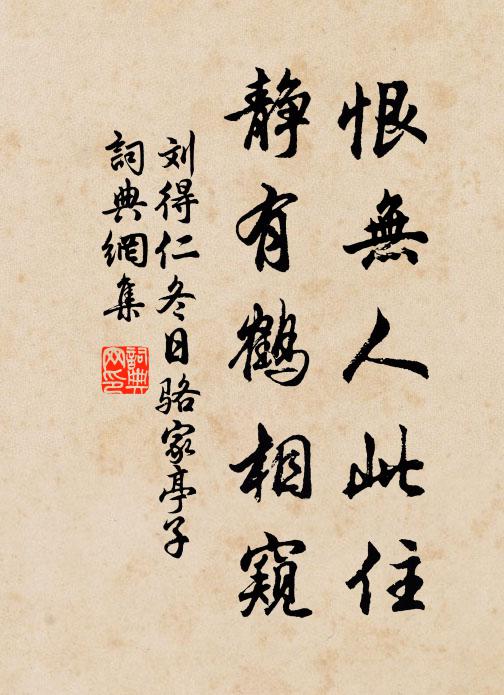 恨無人此住
静有鶴相窺
刘得仁冬日骆家亭子
詞典網集
詞典网印